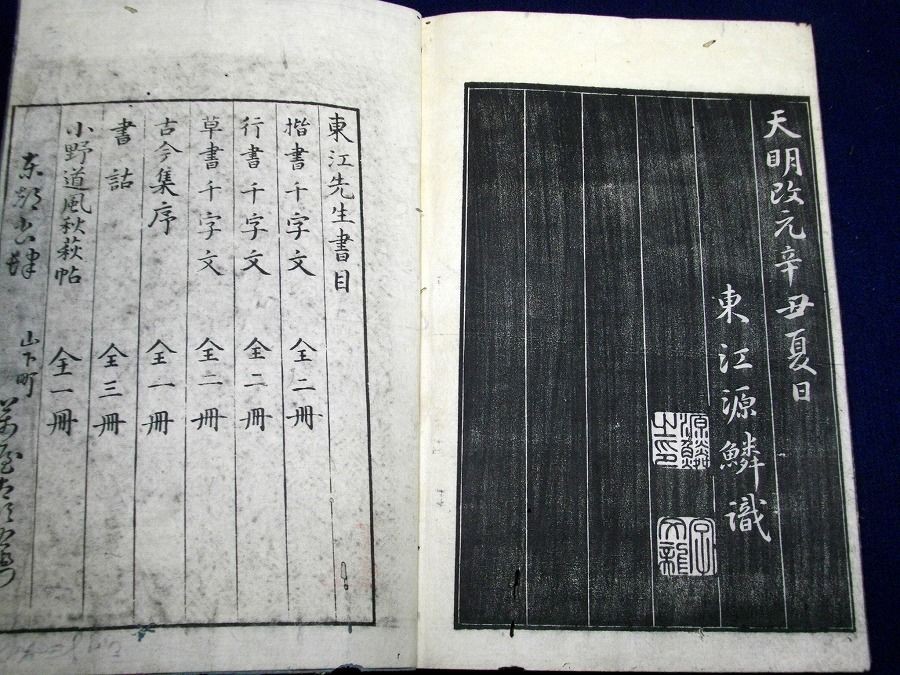 天明改元辛丑夏日
東江源鱗識
源鱗之印
文龍
東江先生書目
楷書千字文 全二冊
行書千字文 全二冊
草書千字文 全二冊
古今集序 全一冊
書詁 全三冊
小野道風秋萩帖 全一冊
東都書肆 山下町